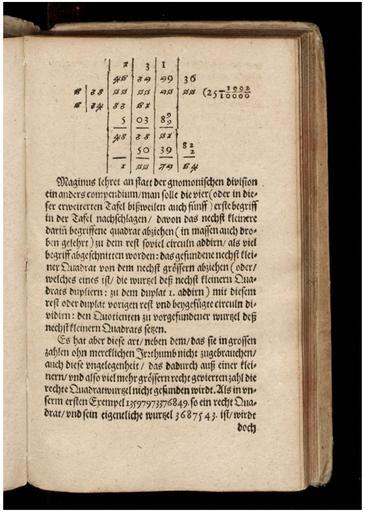 z 3 1
36
(25 1002/10000
5 03 8
50 39 8
Maginus lehret an statt der gnomonischen division
ein anders compendium/ man solle die vier (oder in die-
ser erweiterten Tafel bißweilen auch fünff) erste begriff
in der Tafel nachschlagen/ davon das nechst kleinere
dariñ begriffene quadrat abziehen (in massen auch dro-
ben gelehrt) zu dem rest soviel circuln addirn/ als viel
begriff abgeschnitten worden: das gefundene nechst klei-
ner Quadrat von dem nechst grössern abziehen (oder/
welches eines ist/ die wurtzel deß nechst kleinern Qua-
drats dupliern: zu dem duplat 1. addirn) mit diesem
rest oder duplat vorigen rest vnd beygefügte circuln di-
vidirn: den Quotienten zu vorgefundener wurtzel deß
nechst kleinern Quadrats setzen.
Es hat aber diese art/ neben dem/ das sie in grossen
zahlen ohn mercklichen Jrrthumb nicht zugebrauchen/
auch diese vngelegenheit/ das dadurch auß einer klei-
nern/ vnd also viel mehr grössern recht gevierten zahl die
rechte Quadratwurtzel nicht gefunden wirdt. Als in vn-
serm ersten Exempel 13597973376849. so ein recht Qua-
drat/ vnd sein eigentliche wurtzel 3687543. ist/ wirdt
doch